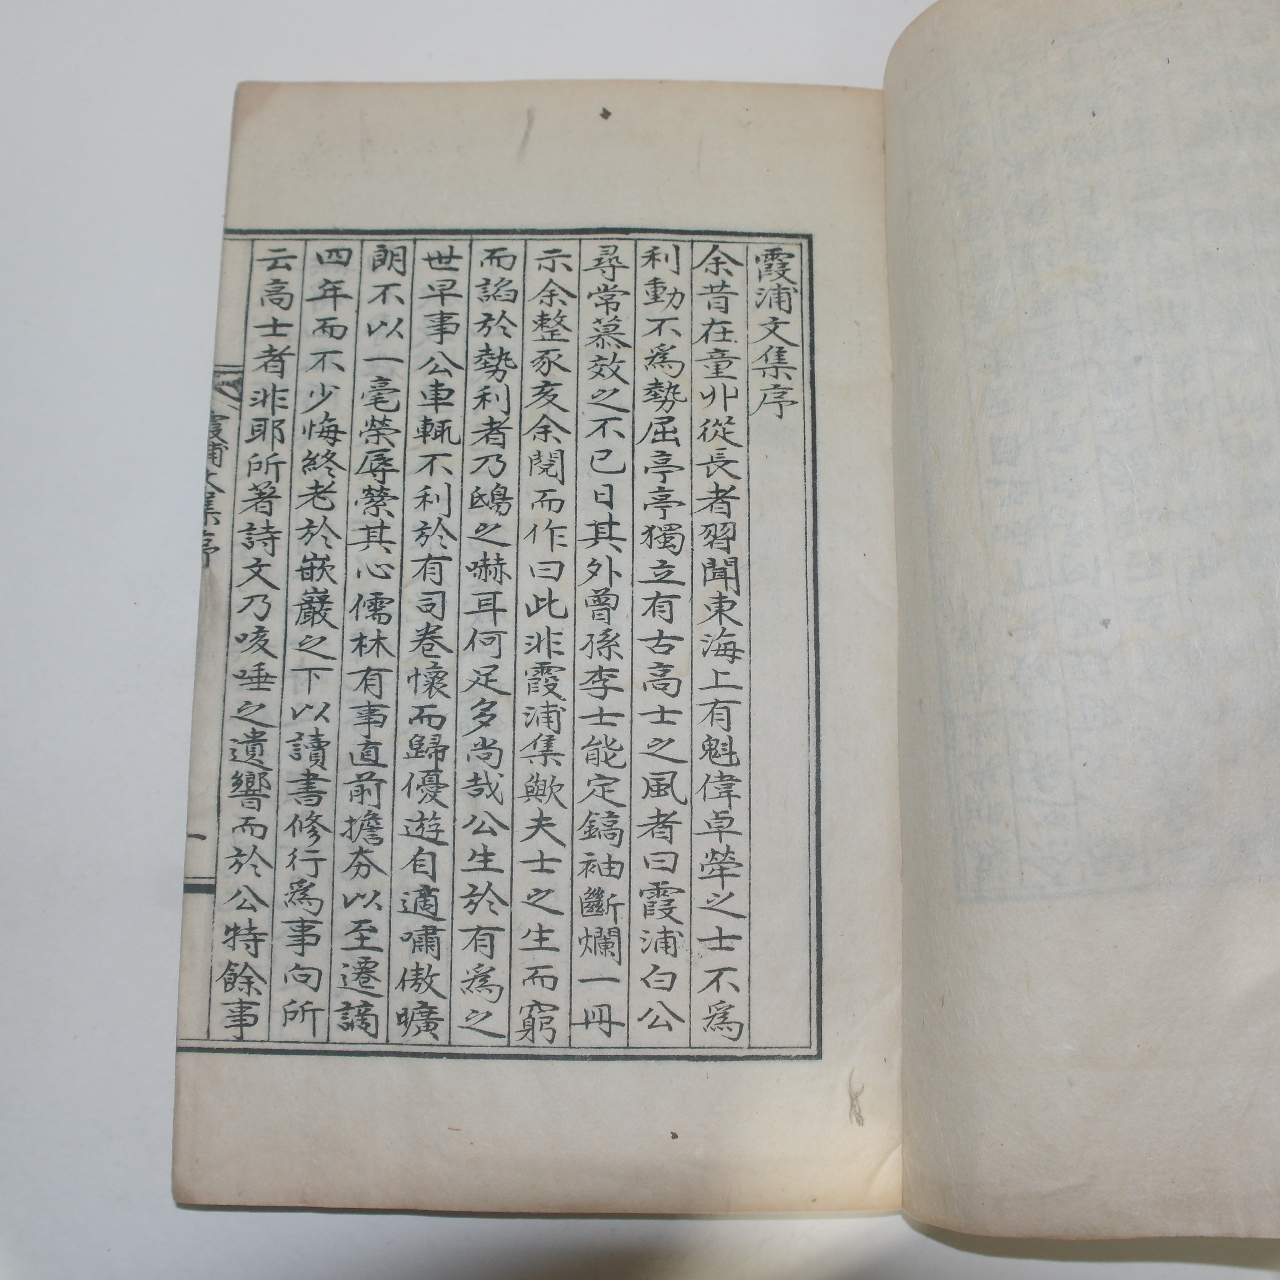 霞浦文集序
余昔在童丱從長者習聞東海上有魁偉卓犖之士不爲
利動不爲勢屈亭亭獨立有古高士之風者曰霞浦白公
尋常慕效之不已日其外曾孫李士能定鎬袖斷爛一冊
示余整豕亥余閱而作曰此非霞浦集歟夫士之生而窮
而諂於勢利者乃鴟之嚇耳何足多尚哉公生於有爲之
世早事公車輒不利於有司卷懷而歸優遊自適嘯傲曠
朗不以一毫榮辱縈其心儒林有事直前擔夯以至遷謫
四年而不少悔終老於嵌巖之下以讀書修行爲事向所
云高士者非耶所著詩文乃咳唾之遺響而於公特餘事
霞浦文集序
一